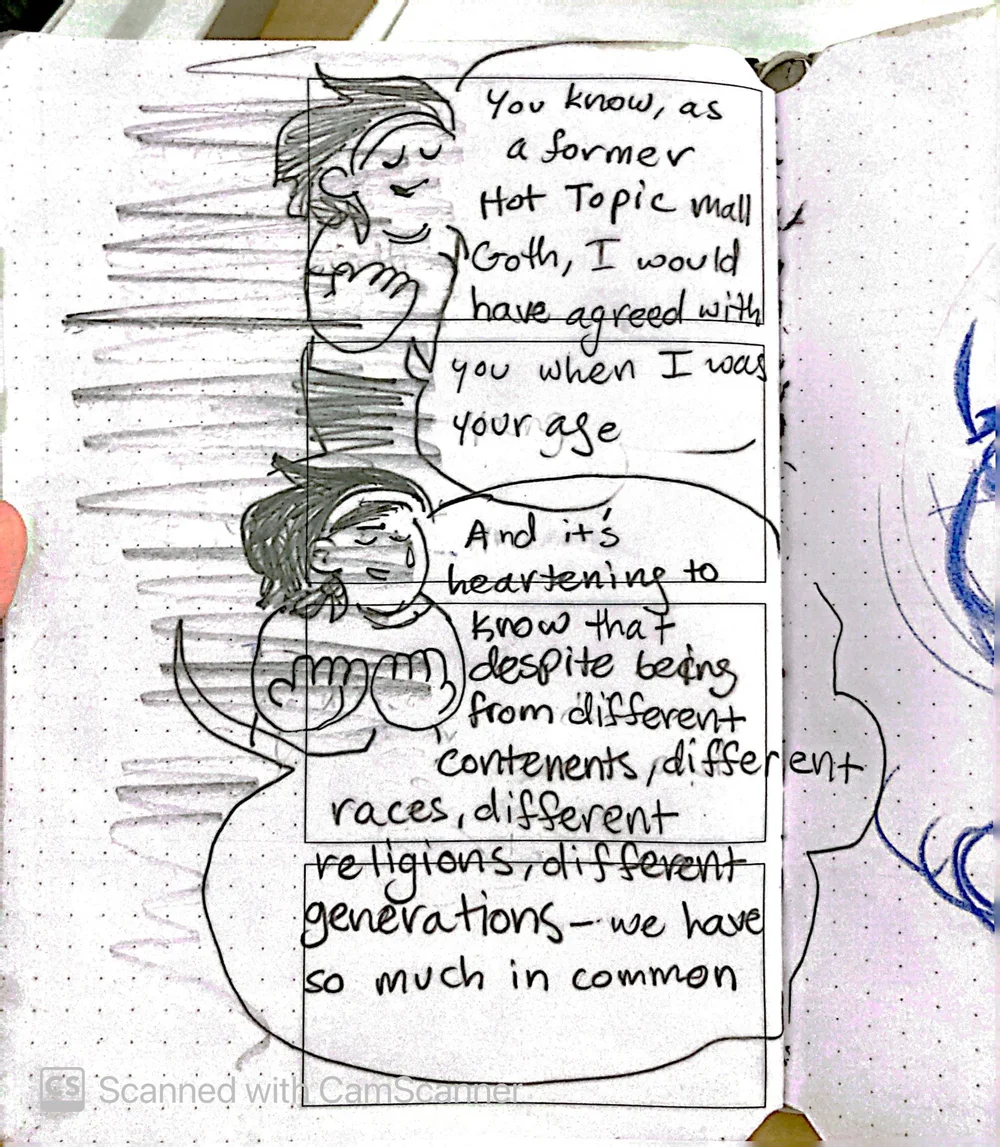 You know, as
a former
Hot Topic mall
Goth, I would
have agreed with
you when I was
your age
And it's
heartening to
know that
despite being
from different
contenents, different
races, different
religions, different
generations – we have
so much in common
CS Scanned with CamScanner